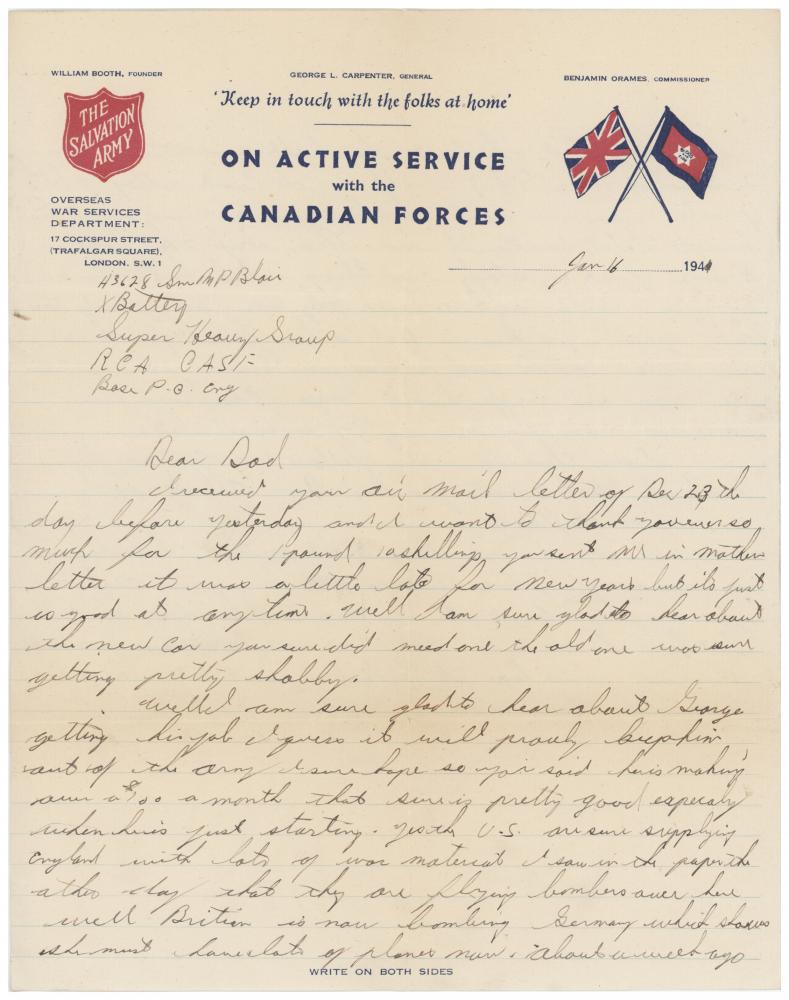 WILLIAM BOOTH, FOUNDER
GEORGE L. CARPENTER, GENERAL
BENJAMIN ORAMES, COMMISSIONER
THE
SALVATION
ARMY
'Keep in touch with the folks at home'
ON ACTIVE SERVICE
with the
CANADIAN FORCES
OVERSEAS
WAR SERVICES
DEPARTMENT:
17 COCKSPUR STREET,
(TRAFALGAR SQUARE),
LONDON. S.W.1
Jan 16 1941
H3628 Gnr M P Blair
X Battery
Super Heavy Group
RCA CASF
Base P.O. Eng
Dear Dad
I received your air mail letter of Dec 23 the
day before yesterday and I want to thank you ever so
much for the 1 pound 10 shillings you sent me in mothers
letter it was a little late for new years but its just
as good at anytime. Well I am sure glad to hear about
the new car you sure did need one the old one was sure
getting pretty shabby.
Well I am sure glad to hear about George
getting his job I guess it will proubly keep him
out of the army I sure hope so you said he is making
over a $100 a month that sure is pretty good especialy
when he is just starting. Yes the U.S. are sure supplying
England with lots of war material I saw in the paper the
other day that they are flying bombers over here
well Britien is now bombing Germany which shows
she must have lots of planes now. About a week ago
WRITE ON BOTH SIDES